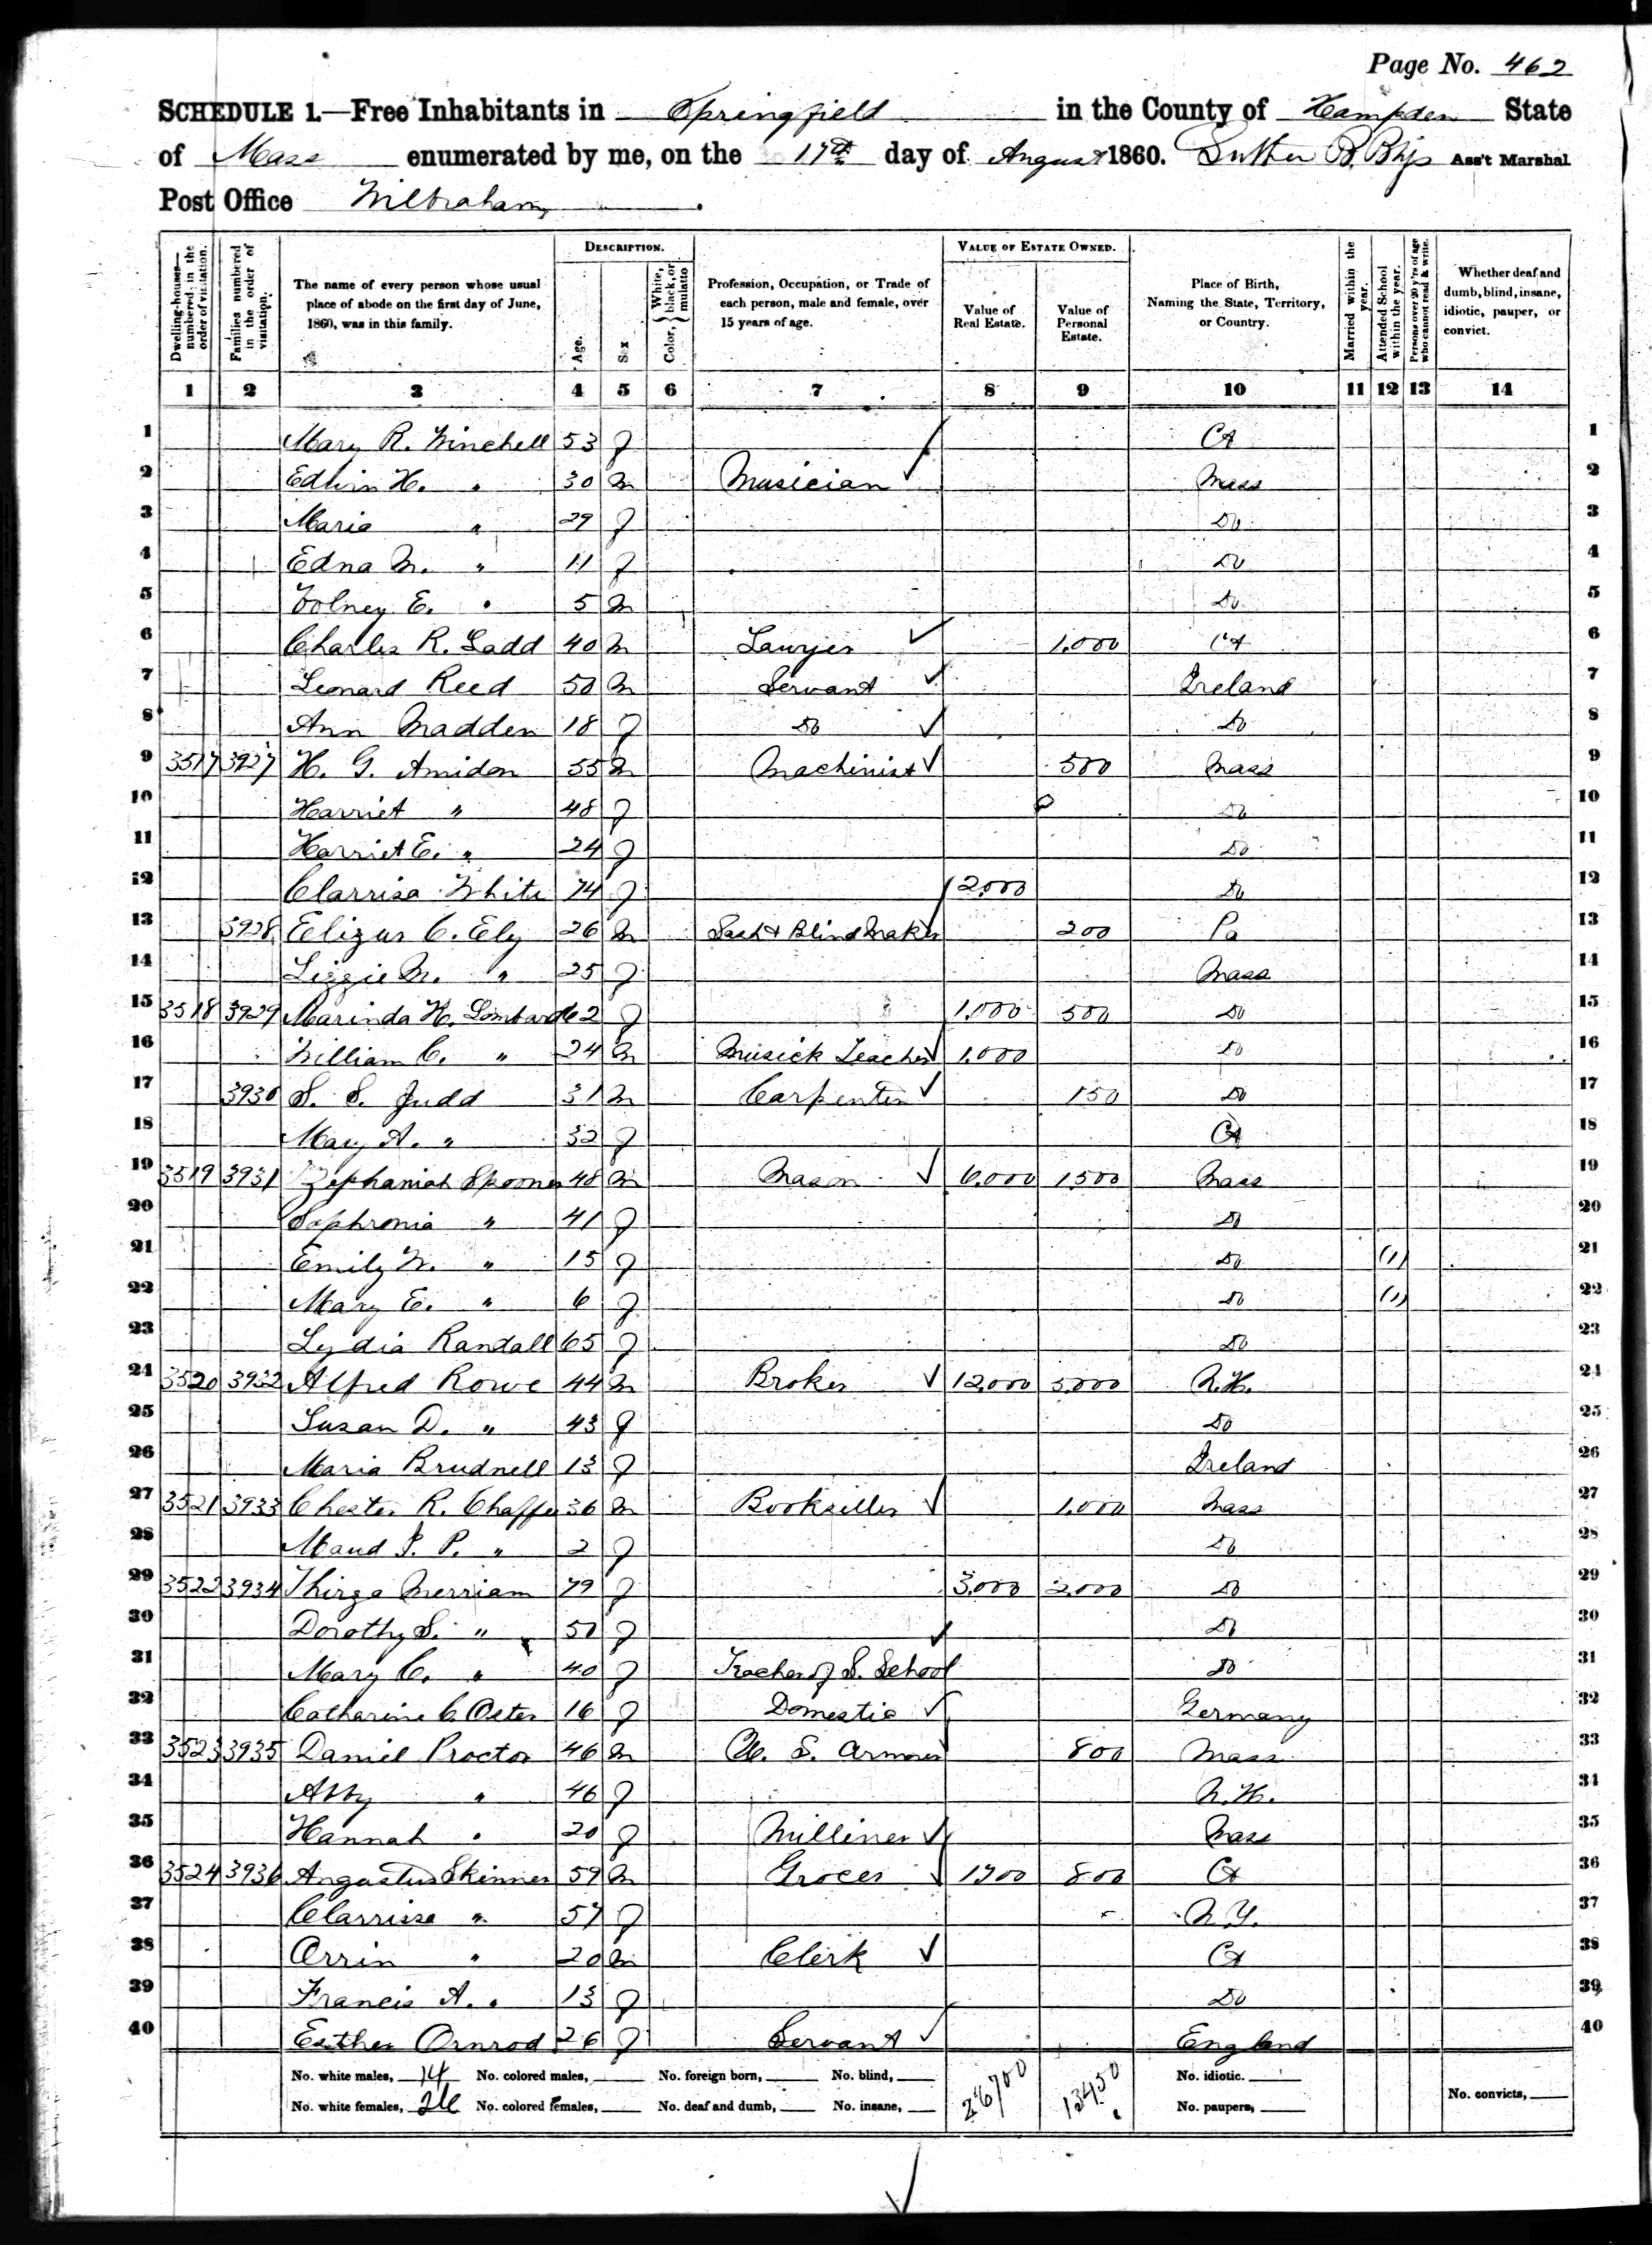 Page No. 462
SCHEDULE 1.—Free Inhabitants in Springfield in the County of Hampden State
of Mass enumerated by me, on the 17th day of August 1860. Luther Ass't Marshal
Post Office Wilbraham.
DESCRIPTION. VALUE OF ESTATE OWNED.
Dwelling-houses—numbered in the order of visitation. Families numbered in the order of visitation. The name of every person whose usual place of abode on the first day of June, 1860, was in this family. Age. Sex Color, { White, black, or mulatto Profession, Occupation, or Trade of each person, male and female, over 15 years of age. Value of Real Estate. Value of Personal Estate. Place of Birth, Naming the State, Territory, or Country. Married within the year. Attended School within the year. Persons over 20 y'rs of age who cannot read & write. Whether deaf and dumb, blind, insane, idiotic, pauper, or convict.
1 2 3 4 5 6 7 8 9 10 11 12 13 14
1 Mary R. Winchell 53 f Ct 1
2 Edwin H. " 30 m Musician Mass 2
3 Maria " 29 f Do 3
4 Edna M. " 11 f Do 4
5 Volney E. " 5 m Do 5
6 Charles R. Ladd 40 m Lawyer 1,000 Ct 6
7 Leonard Reed 50 m Servant Ireland 7
8 Ann Madden 18 f Do Do 8
9 3517 3927 H. G. Amidon 55 m Machinist 500 Mass 9
10 Harriet " 48 f Do 10
11 Harriet E. " 24 f Do 11
12 Clarrisa White 74 f 2,000 Do 12
13 3928 Elizur C. Ely 26 m Sash & Blind Maker 200 Pa 13
14 Lizzie M. " 25 f Mass 14
15 3518 3929 Marinda H. Lombard 62 f 1,000 500 Do 15
16 William C. " 24 m Musick Teacher 1,000 Do 16
17 3930 S. S. Judd 31 m Carpenter 150 Do 17
18 Mary A. " 32 f Ct 18
19 3519 3931 Zephaniah Spooner 48 m Mason 6,000 1500 Mass 19
20 Sophronia " 41 f Do 20
21 Emily W. " 15 f Do (1) 21
22 Mary E. " 6 f Do (1) 22
23 Lydia Randall 65 f Do 23
24 3520 3932 Alfred Rowe 44 m Broker 12,000 5,000 N.H. 24
25 Susan D. " 43 f Do 25
26 Maria Brudnell 13 f Ireland 26
27 3521 3933 Chester R. Chaffee 36 m Bookseller 1,000 Mass 27
28 Maud P. " 2 f Do 28
29 3522 3934 Thirza Merriam 79 f 3,000 2,000 Do 29
30 Dorothy S. " 50 f Do 30
31 Mary C. " 40 f Teacher of S. School Do 31
32 Catharine C. Oster 16 f Domestic Germany 32
33 3523 3935 Daniel Proctor 46 m U. S. Armorer 800 Mass 33
34 Abby " 46 f N.H. 34
35 Hannah " 20 f Milliner Mass 35
36 3524 3936 Augustus Skinner 59 m Grocer 1700 800 Ct 36
37 Clarrissa " 57 f N.Y. 37
38 Orrin " 20 m Clerk Ct 38
39 Francis A. " 13 f Do 39
40 Esther Ormrod 26 f Servant England 40
No. white males, 14 No. colored males, No. foreign born, No. blind, 26700 13450 No. idiotic.
No. white females, 26 No. colored females, No. deaf and dumb, No. insane, No. paupers, No. convicts,